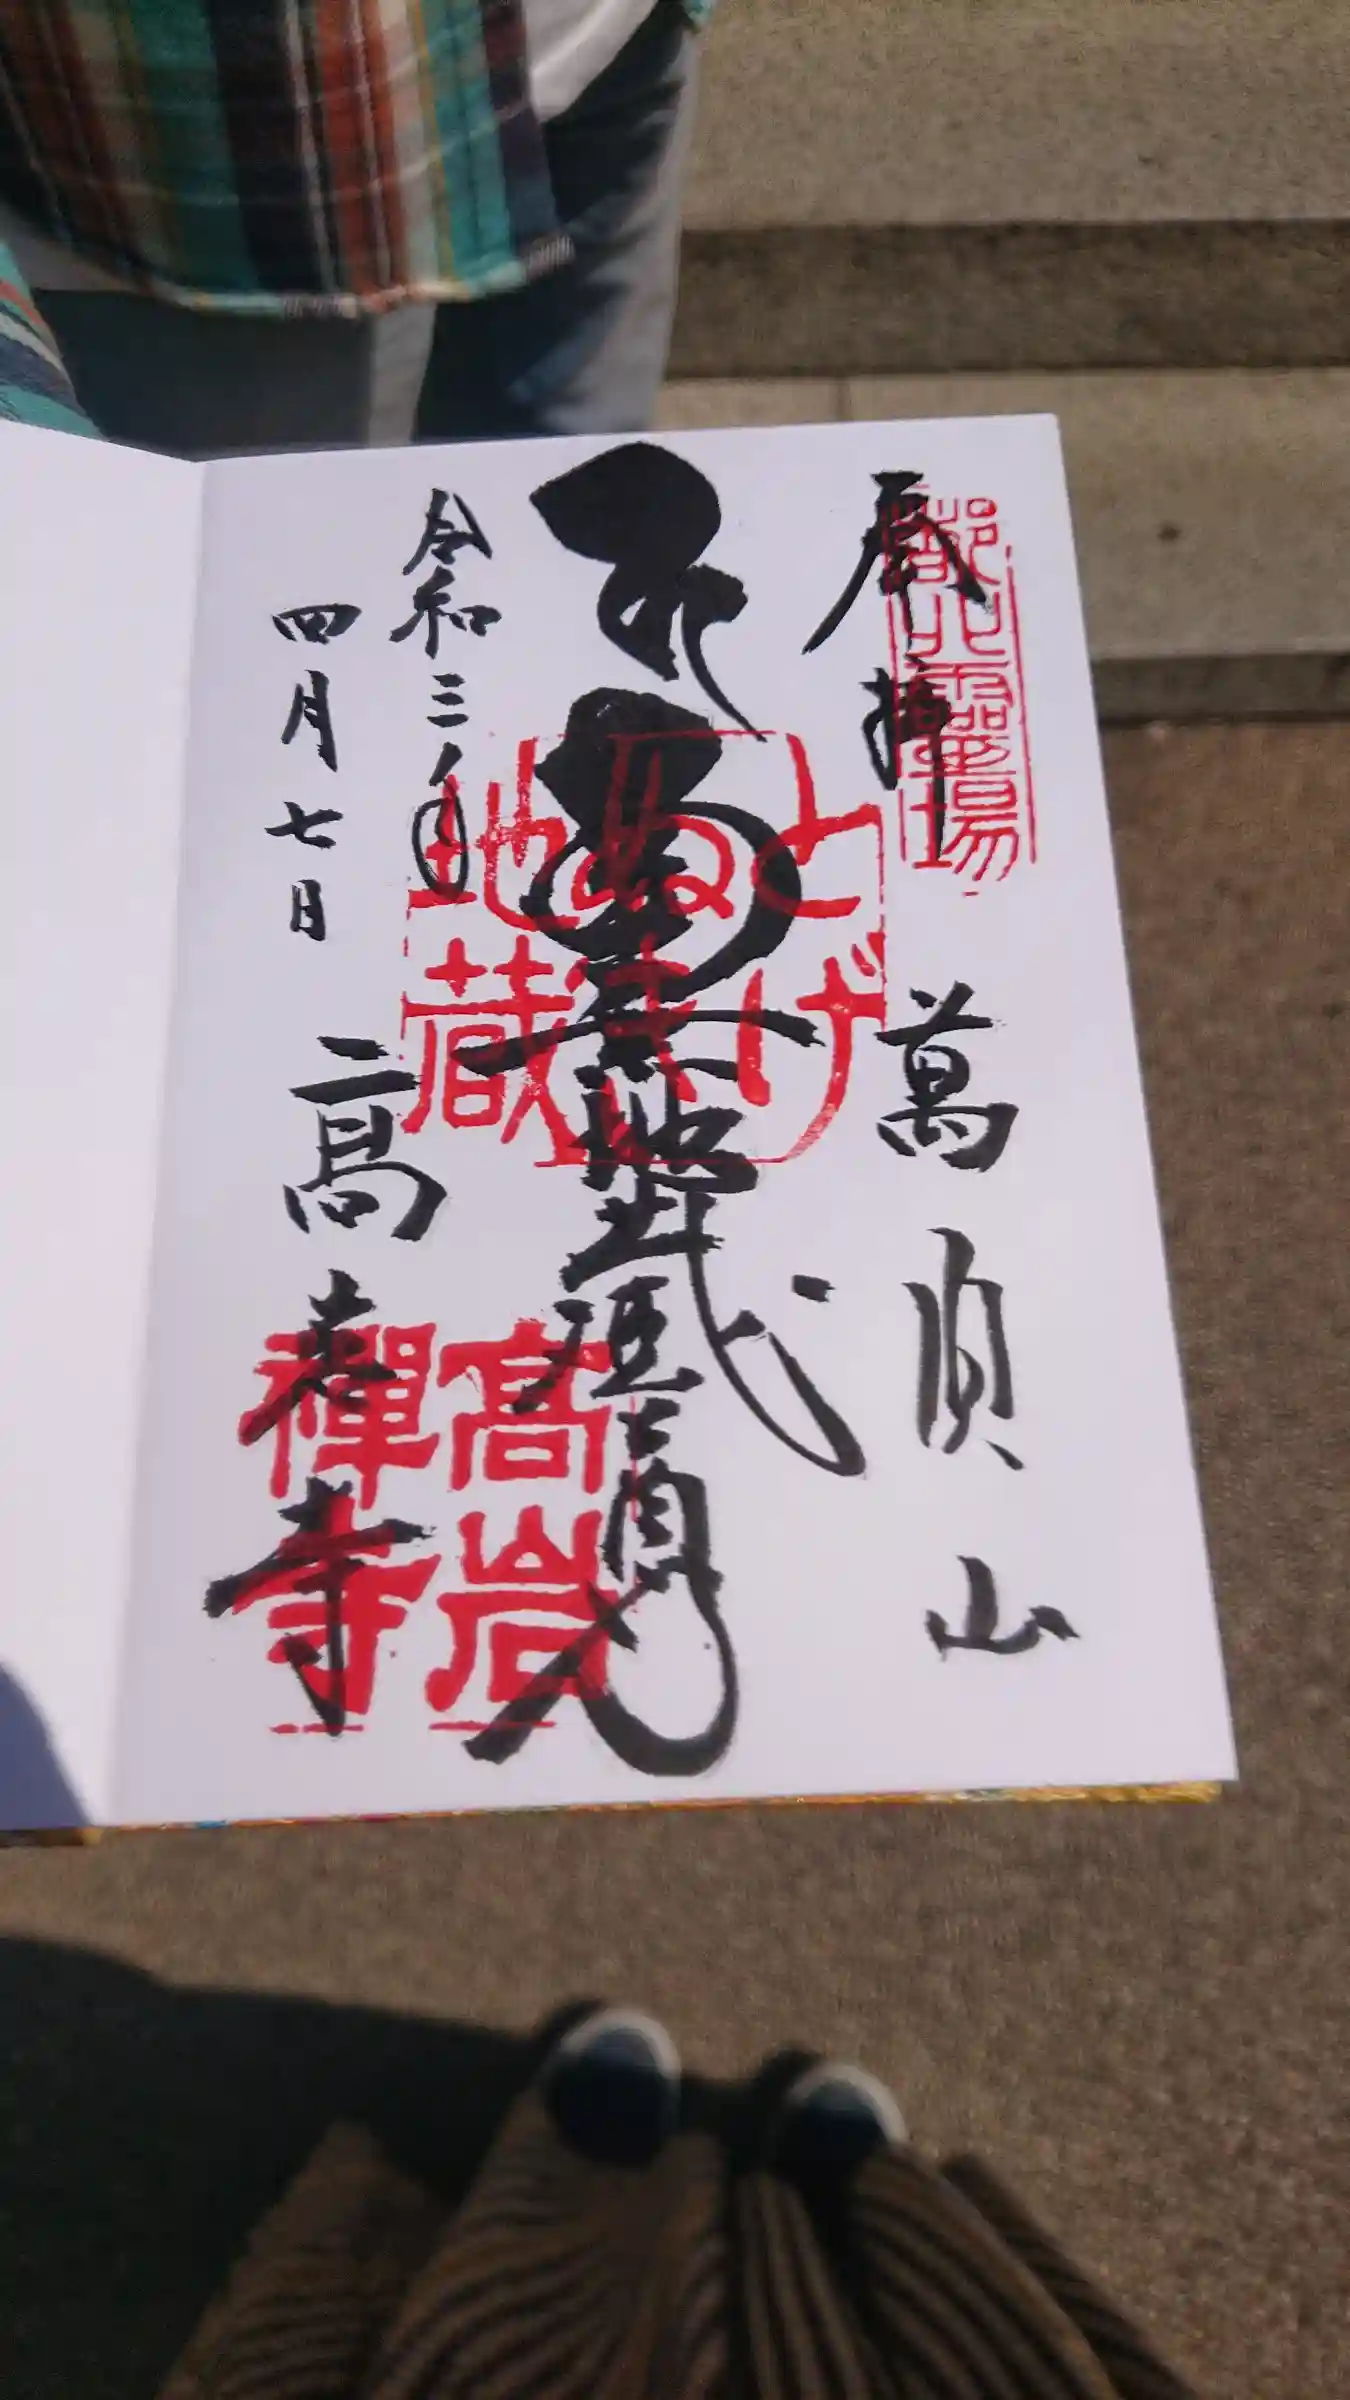 奉拝
萬頂山
靈場
南無地蔵尊
とげ
ぬき
地蔵
令和三年
四月七日
高岩寺
高岩
禪寺